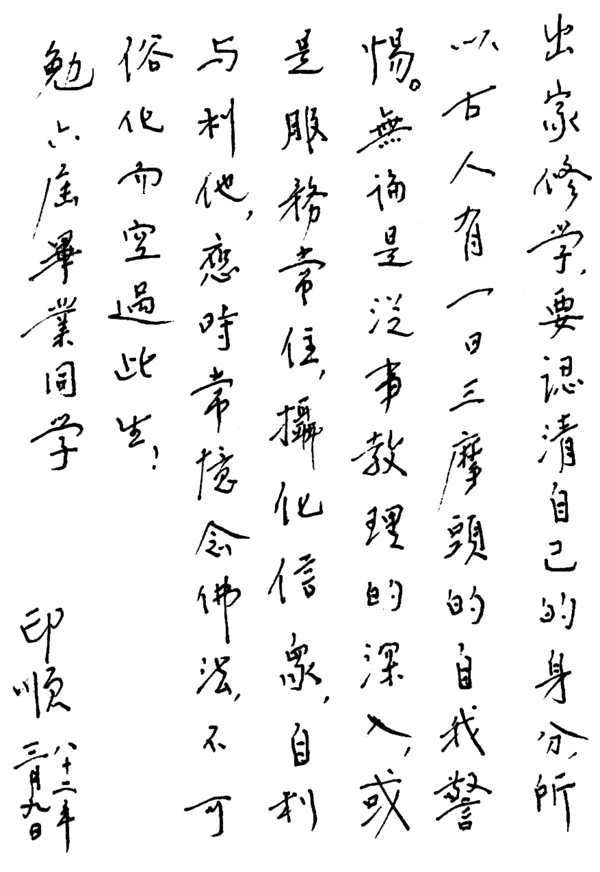 出家修学，要認清自己的身分，所
以古人有一日三摩頭的自我警
惕。無論是从事教理的深入，或
是服務常住，攝化信眾，自利
与利他，應時常憶念佛法，不可
俗化而空過此生！
勉六届畢業同学
印順
八十二年
三月九日